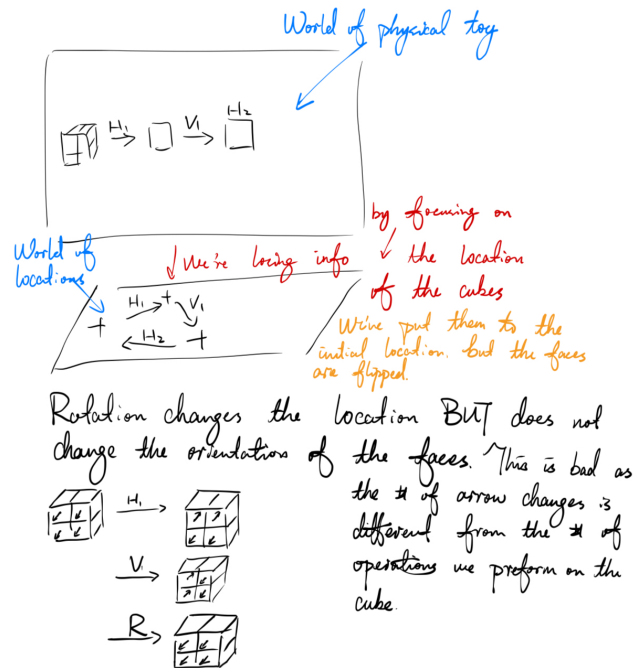 World of physical toy
H₁ V₁ H₂
by focusing on
World of locations
We're losing info
the location
of the cubes
H₁ V₁
H₂
We've put them to the
initial location. but the faces
are flipped.
Rotation changes the location BUT does not
change the orientation of the faces. This is bad as
the # of arrow changes is
different from the # of
operations we preform on the
cube.
H₁
V₁
R